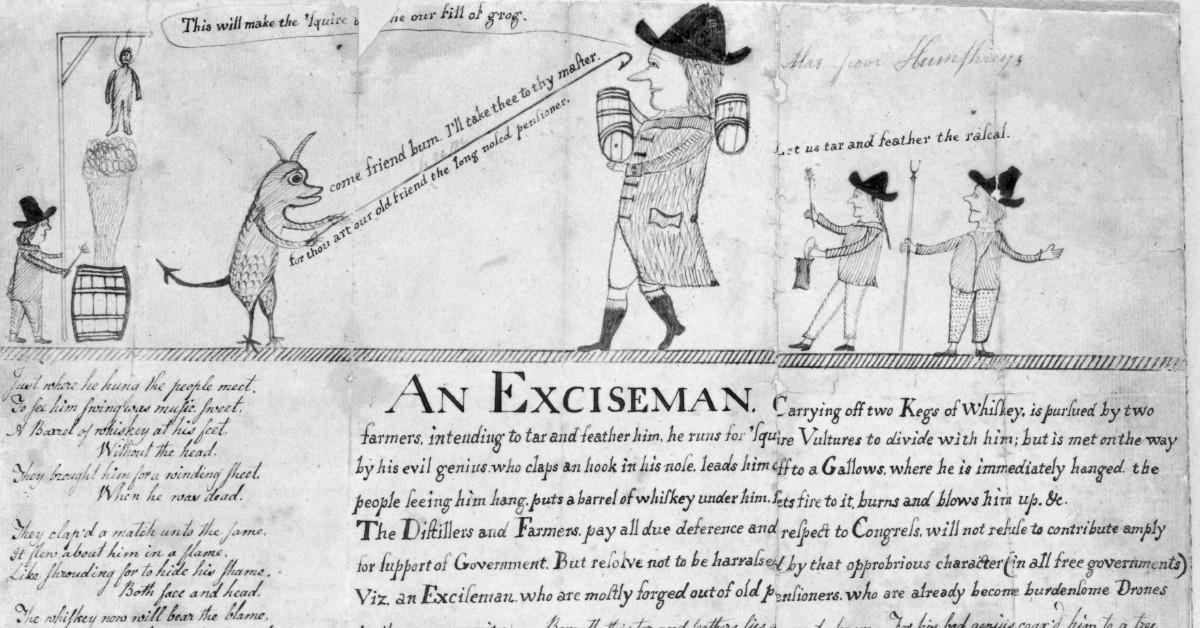 This will make the 'squire & me our fill of grog.
Mrs poor Humphreys
come friend bum. I'll take thee to thy master.
for thou art our old friend the long nosed pensioner.
Let us tar and feather the rascal.
Just where he hung the people meet.
To see him swing was music sweet.
A Barrel of whiskey at his feet.
Without the head.
They brought him for a winding sheet.
When he was dead.
They clap'd a match unto the same.
It flew about him in a flame.
Like shrouding for to hide his shame.
Both face and head.
The whiskey now will bear the blame.
AN EXCISEMAN. Carrying off two Kegs of Whiskey, is pursued by two
farmers, intending to tar and feather him, he runs for 'Squire Vultures to divide with him; but is met on the way
by his evil genius who claps an hook in his nose, leads him off to a Gallows, where he is immediately hanged. the
people seeing him hang, puts a barrel of whiskey under him, sets fire to it, burns and blows him up. &c.
The Distillers and Farmers, pay all due deference and respect to Congress, will not refuse to contribute amply
for support of Government. But resolve not to be harrassed by that opprobrious character (in all free governments)
Viz. an Exciseman, who are mostly forged out of old pensioners, who are already become burdensome Drones
For his bad genius coax'd him to a tree